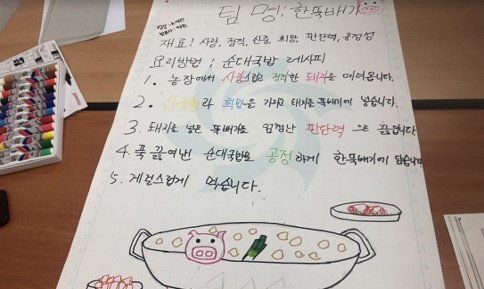 팀 명: 한뚝배기
재료: 사랑, 정직, 신중, 희망, 판단력, 공정성
요리방법 ; 순대국밥 레시피
1. 농장에서 사랑스럽고 정직한 돼지를 데려옵니다.
2. 라 희망을 가진 돼지를 뚝배기에 넣습니다.
3. 돼지를 넣은 뚝배기를 엄청난 판단력 으로 끓입니다
4. 푹 끓여낸 순대국밥을 공정 하게 한뚝배기에 담습니다
5. 게걸스럽게 먹습니다.